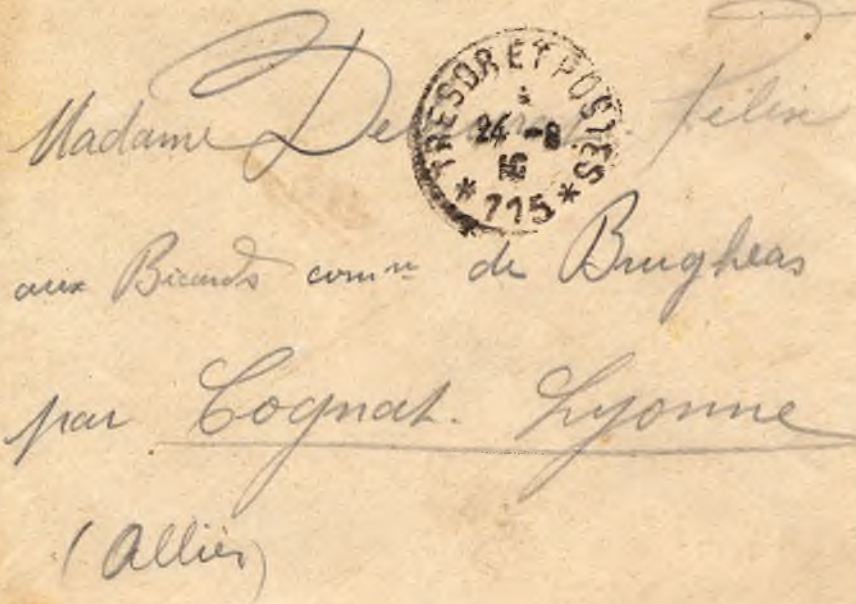 Madame Félix
TRESOR ET POSTES
24 -8
16
* 715 *
aux Bicards comne de Brugheas
par Cognat. Lyonne
(Allier)